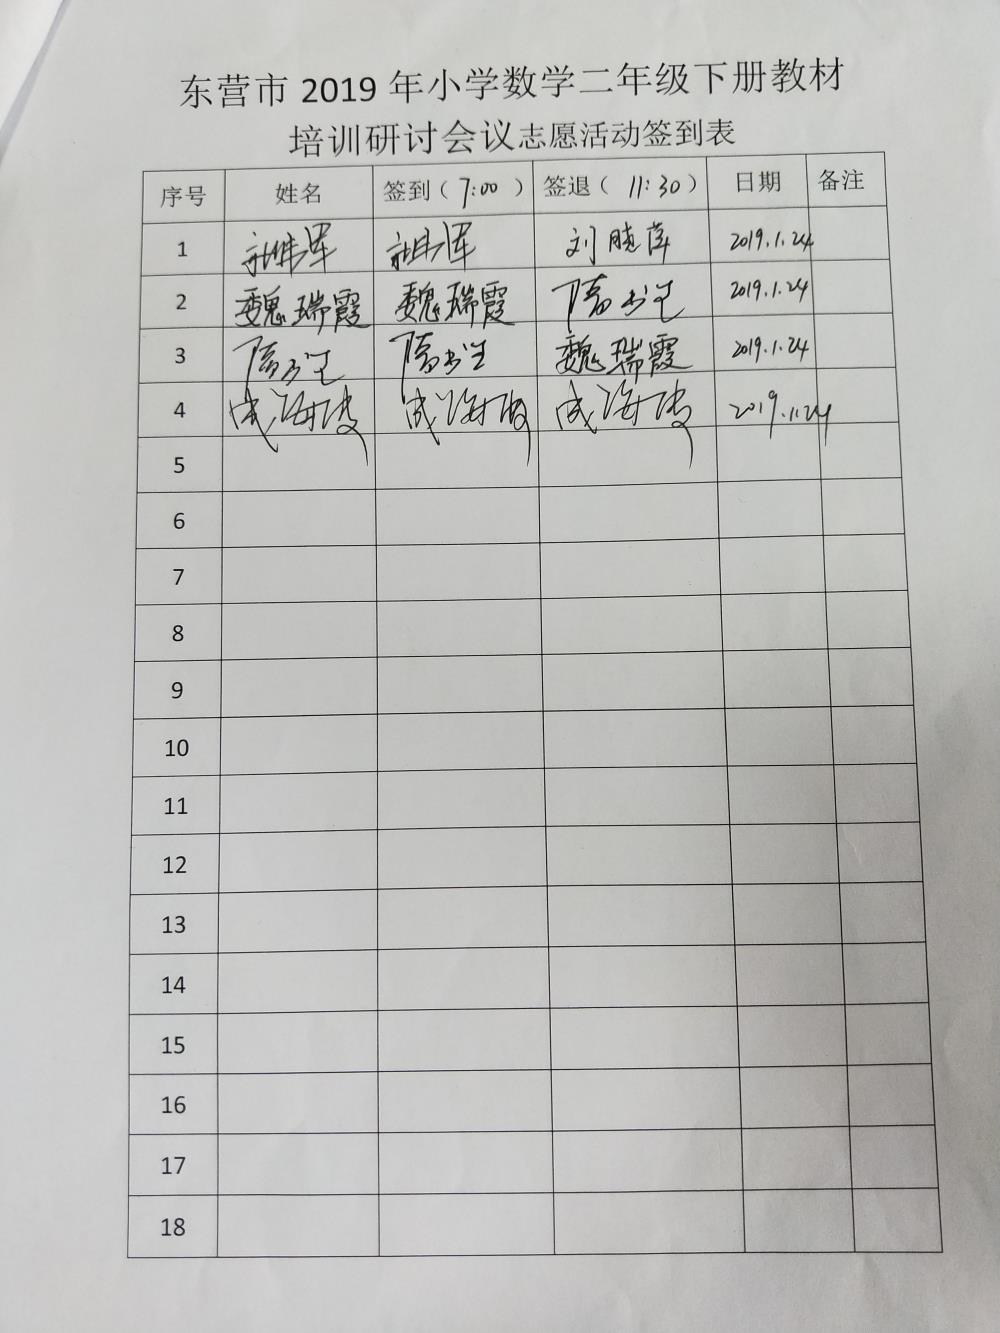 东营市 2019 年小学数学二年级下册教材
培训研讨会议志愿活动签到表
序号 姓名 签到（ 7:00 ） 签退（ 11:30 ） 日期 备注
1 刘晓萍 2019.1.24
2 魏瑞霞 魏瑞霞 2019.1.24
3 魏瑞霞 2019.1.24
4 2019.1.24
5
6
7
8
9
10
11
12
13
14
15
16
17
18